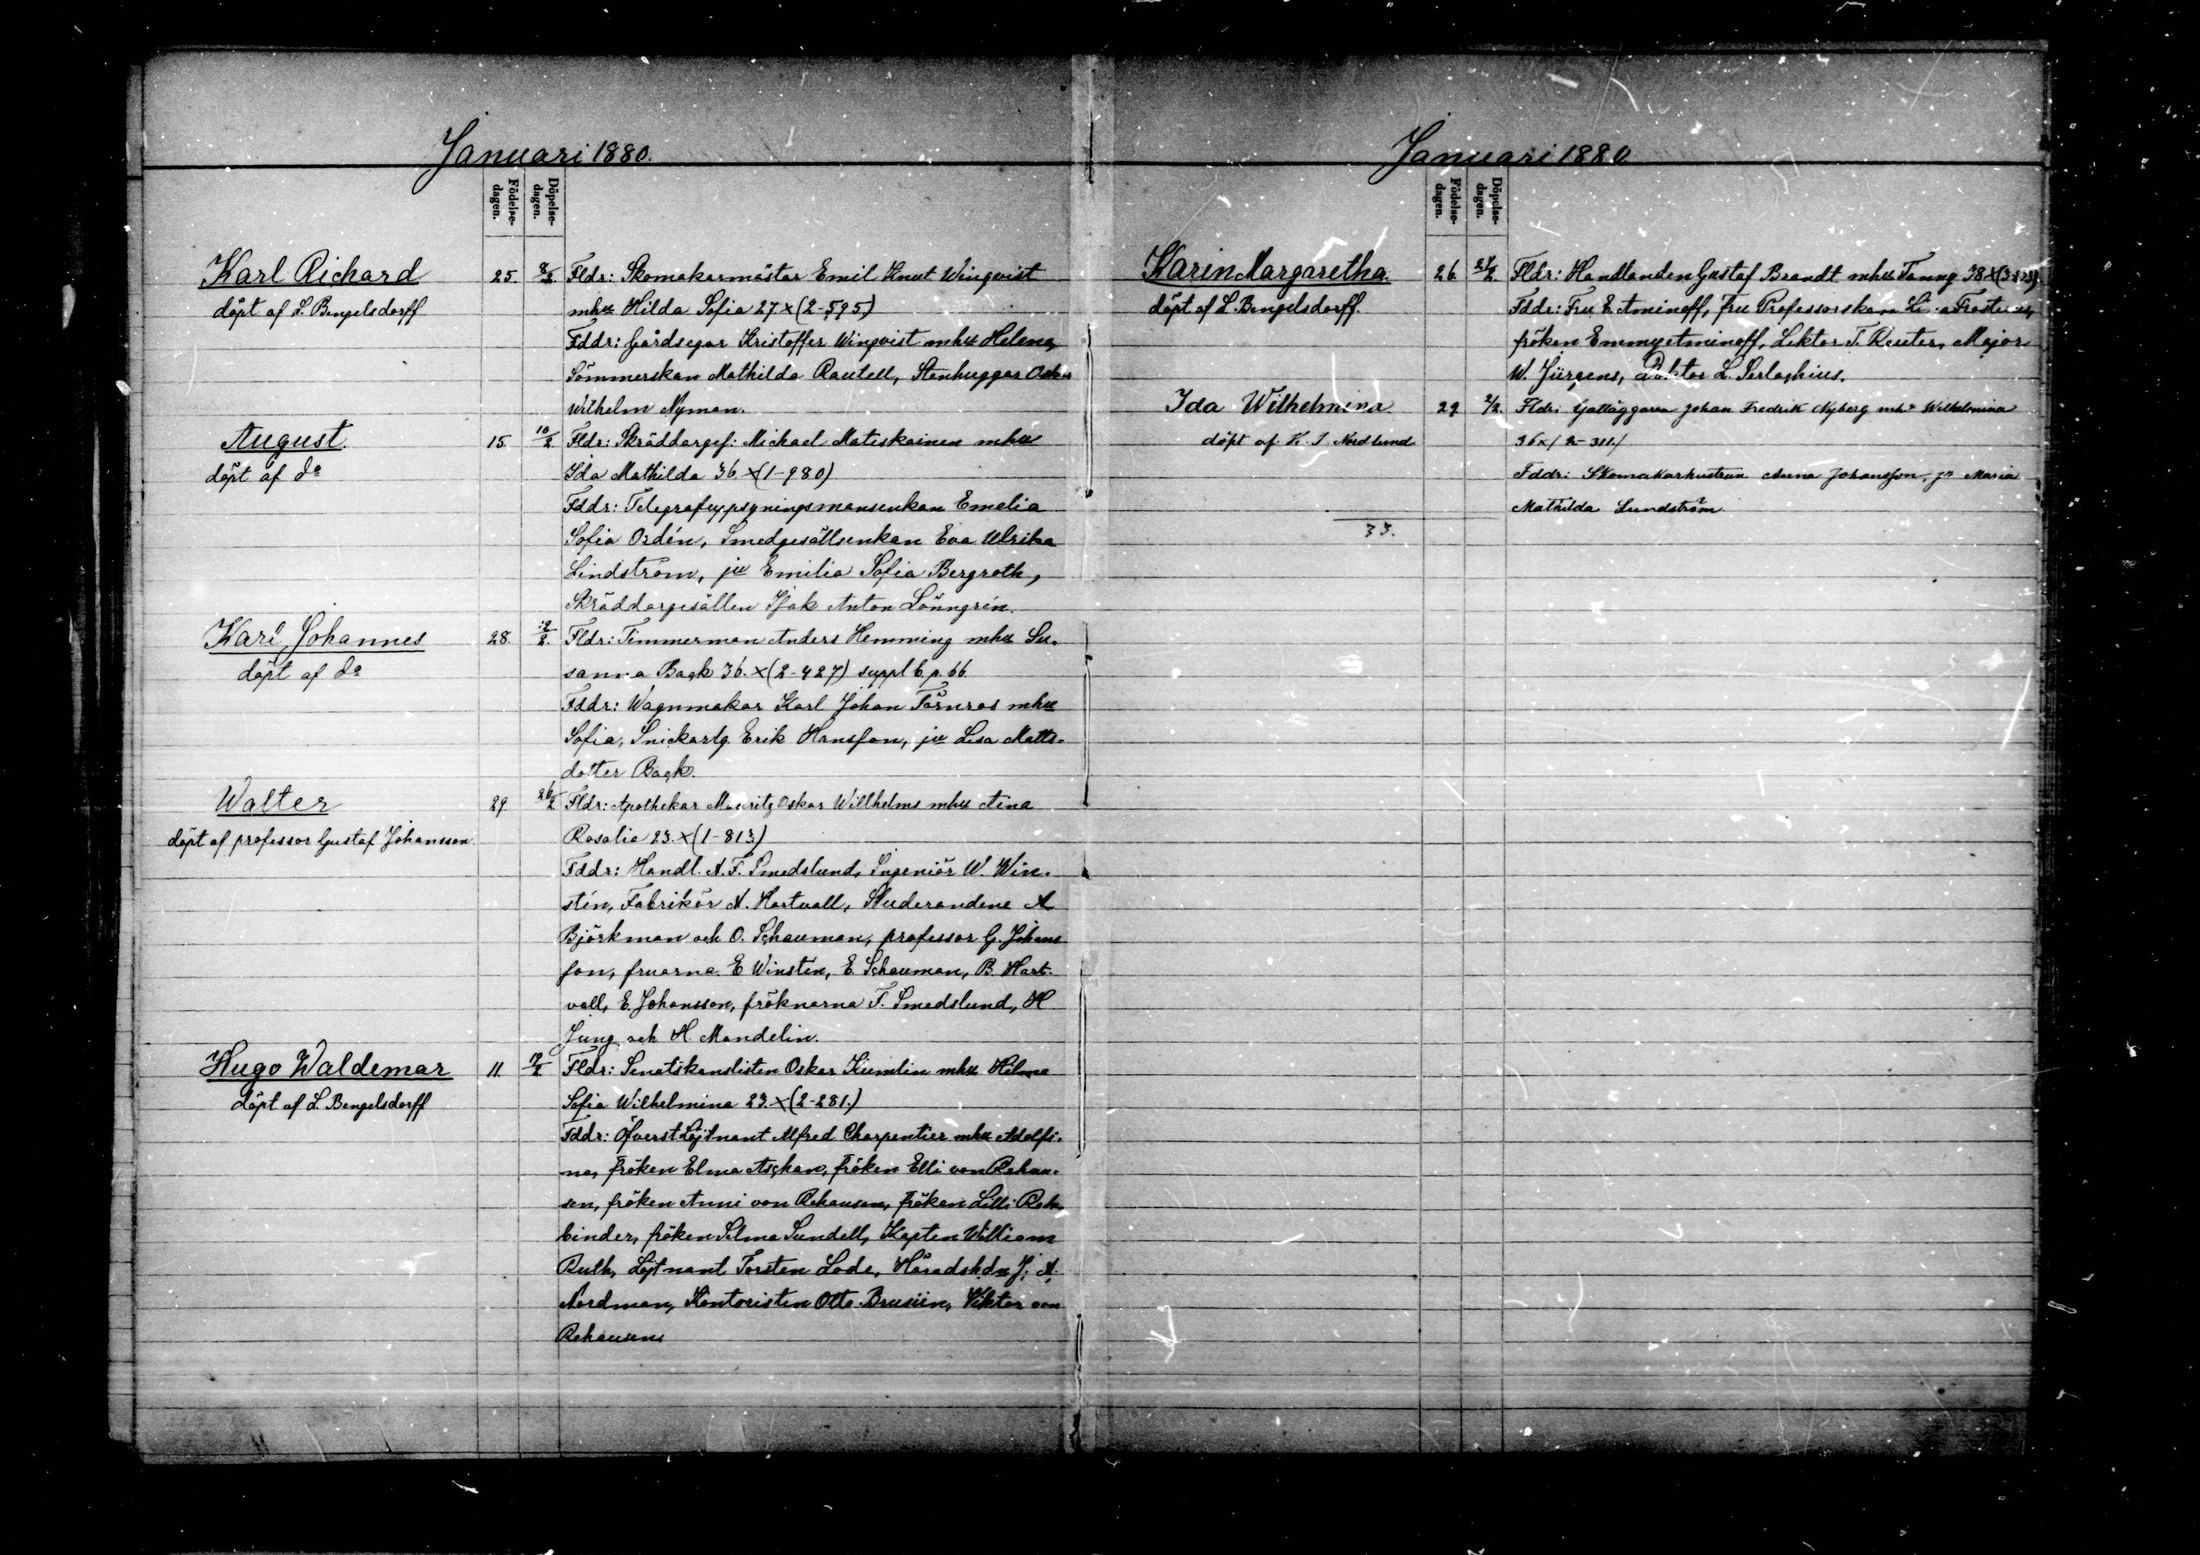 Januari 1880.
Födelse-
dagen.
Döpelse-
dagen.
Karl Richard
döpt af L. Bengelsdorff
25. 8/2 Fldr: Skomakarmästar Emil Knut Winqvist
mhu Hilda Sofia 27 x (2-595)
Fddr: Gårdsegar Kristoffer Winqvist mhu Helena,
Sömmerskan Mathilda Rautell, Stenhuggar Oskar
Wilhelm Nyman.
August.
döpt af do
15. 10/2 Fldr: Skräddargef: Michael Matiskainen mhu
Ida Mathilda 36. x (1-980)
Fddr: Telegrafuppsyningsmansenkan Emelia
Sofia Ordén, Smedgesällsenkan Eva Ulrika
Lindström, ju Emilia Sofia Bergroth,
Skräddargesällen Isak Anton Lönngrén.
Karl Johannes
döpt af do
28. 12/2. Fldr: Timmerman Anders Hemming mhu Su-
sanna Back 36. x (2-427) suppl 6 p. 66.
Fddr: Wagnmakar Karl Johan Törnros mhu
Sofia, Snickarlg. Erik Hansson, ju Lisa Matts-
dotter Back.
Walter
döpt af professor Gustaf Johansson
29. 26/2 Fldr: Apothekar Mauritz Oskar Willhelms mhu Aina
Rosalie 23. x (1-813)
Fddr: Handl. A. F. Smedslund, Ingeniör W. Win-
stén, Fabrikör A. Hartvall, Studerandene A
Björkman och O. Schauman, professor G. Johans
son, fruarna E Winstén, E. Schauman, B. Hart-
vall, E. Johansson, fröknarna F. Smedslund, H
Jung och H. Mandelin.
Hugo Waldemar
döpt af L. Bengelsdorff
11. Fldr: Senatskanslisten Oskar Kumlin mhu Helma
Sofia Wilhelmina 23. x (2-281.)
Fddr: ÖfverstLöjtnant Alfred Charpentier mhu Adolfi-
na, fröken Elma Aschan, fröken Elli von Rehau-
sen, fröken Anni von Rehausen, fröken Lilli Reh-
binder, fröken Selma Sundell, Kapten William
Ruth, Löjtnant Torsten Lode, Häradshd J. A.
Nordman, Kontoristen Otto Brusiin, Viktor von
Rehausen
Januari 1880
Födelse-
dagen.
Döpelse-
dagen.
Karin Margaretha
döpt af L. Bengelsdorff.
26 Fldr: Handlanden Gustaf Brandt mhu Fanny 38 x
Fddr: Fru E. Aminoff, fru Professorskan Frosterus,
fröken Emmy Aminoff, Lektor T. Reuter, Major
W. Jürgens, Doktor L. Serlachius.
Ida Wilhelmina
döpt af K. J Nordlund
29 2/2. Fldr: Gatläggaren Johan Fredrik Nyberg mhu Wilhelmina
36 x / 2-311/
Fddr: Skomakarhustrun Anna Johansson, ju Maria
Mathilda Lundström
33.